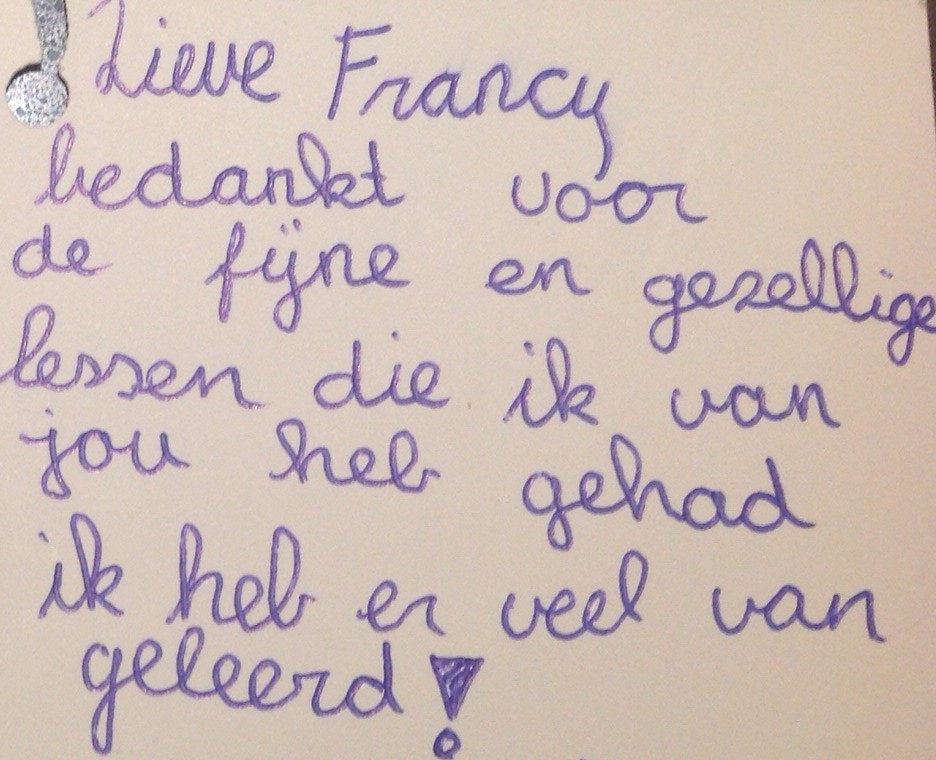 Lieve Francy
bedankt voor
de fijne en gezellige
lessen die ik van
jou heb gehad
ik heb er veel van
geleerd!